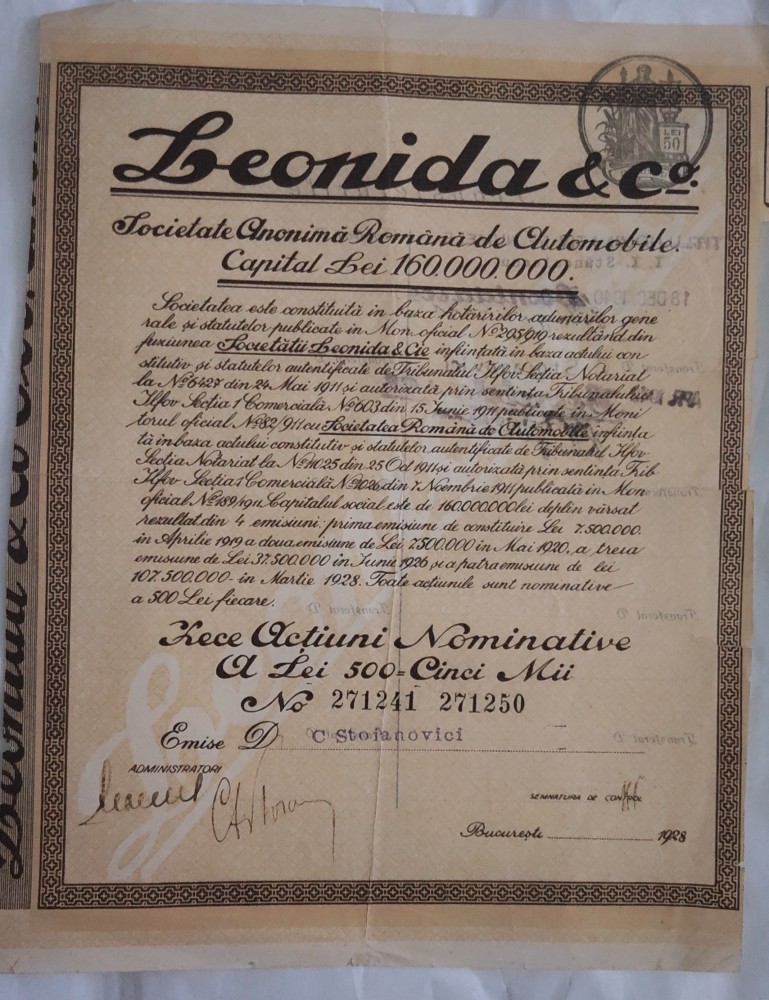 LEI
50
Leonida & Co.
Societate Anonimă Română de Automobile.
Capital Lei 160.000.000.
Societatea este constituită în baza hotărîrilor adunărilor gene
rale și statutelor publicate în Mon. oficial No 295/919 rezultând din
fuziunea Societății Leonida & Cie înființată în baza actului con
stitutiv și statutelor autentificate de Tribunalul Ilfov Secția Notariat
la No 6427 din 24 Mai 1911 și autorizată prin sentința Tribunalului
Ilfov Secția 1 Comercială No 603 din 15 Iunie 1911 publicate în Moni
torul oficial No 82/911 cu Societatea Română de Automobile înființa
tă în baza actului constitutiv și statutelor autentificate de Tribunalul Ilfov
Secția Notariat la No 11025 din 25 Oct 1911 și autorizată prin sentința Trib
Ilfov Secția 1 Comercială No 1026 din 7 Noembrie 1911 publicată în Mon
oficial No 189/1911. Capitalul social este de 160.000.000 lei deplin vărsat
rezultat din 4 emisiuni: prima emisiune de constituire Lei 7.500.000.
în Aprilie 1919 a doua emisiune de Lei 7.500.000 în Mai 1920, a treia
emisiune de Lei 37.500.000 în Iunie 1926 și a patra emisiune de lei
107.500.000- în Martie 1928. Toate acțiunile sunt nominative
a 500 Lei fiecare.
Zece Acțiuni Nominative
A Lei 500 = Cinci Mii
No 271241 271250
Emise D C Stoianovici
ADMINISTRATORI
SEMNATURA DE CONTROL
București 1928
Leonida & Co